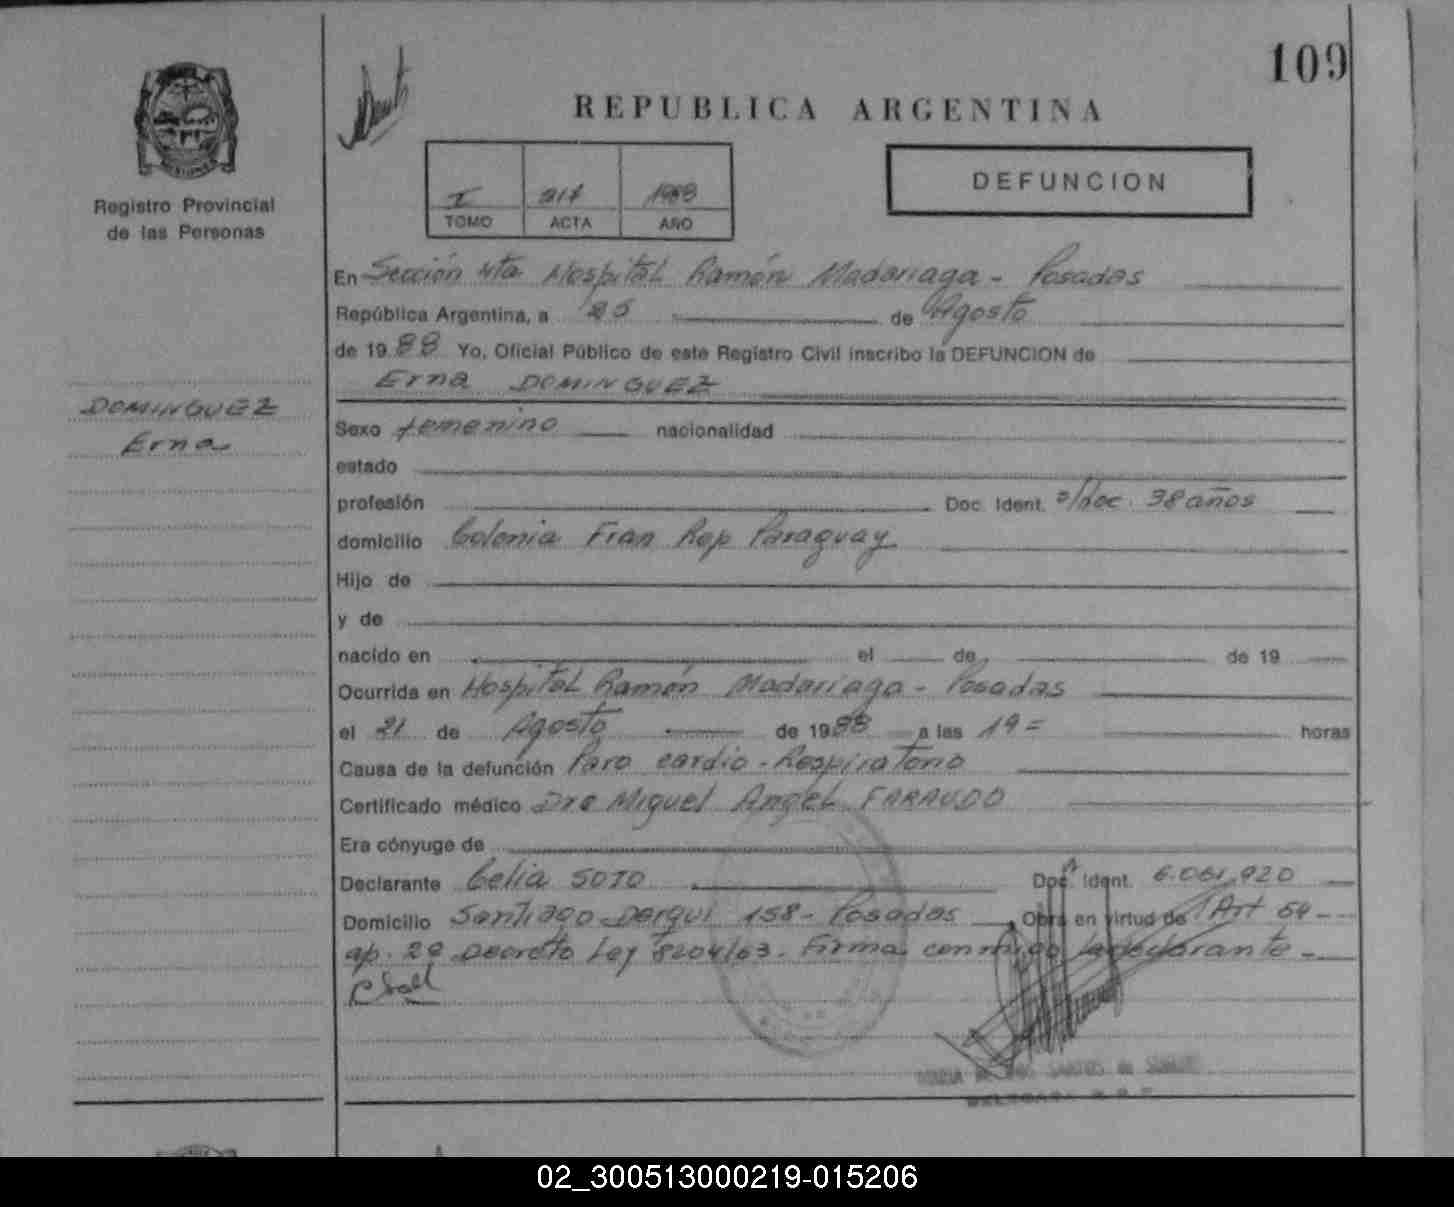 109
REPUBLICA ARGENTINA
Registro Provincial
de las Personas
I 217 1988
TOMO ACTA AÑO
DEFUNCION
En Sección 4ta Hospital Ramón Madariaga - Posadas
República Argentina, a 25 de Agosto
de 1988 Yo, Oficial Público de este Registro Civil inscribo la DEFUNCION de
Erna DOMINGUEZ
DOMINGUEZ
Erna
Sexo femenino nacionalidad
estado
profesión Doc. Ident. s/doc. 38 años
domicilio Colonia Fran Rep Paraguay
Hijo de
y de
nacido en el de de 19
Ocurrida en Hospital Ramón Madariaga - Posadas
el 21 de Agosto de 1988 a las 19 = horas
Causa de la defunción Paro cardio - Respiratorio
Certificado médico Dre Miguel Angel FARAUDO
Era cónyuge de
Declarante Celia SOTO Doc. Ident. 6.061.920
Domicilio Santiago Derqui 158 - Posadas Obra en virtud de Art 64 -
ap. 2º Decreto Ley 8204/63. Firma conmigo la declarante -
02_300513000219-015206